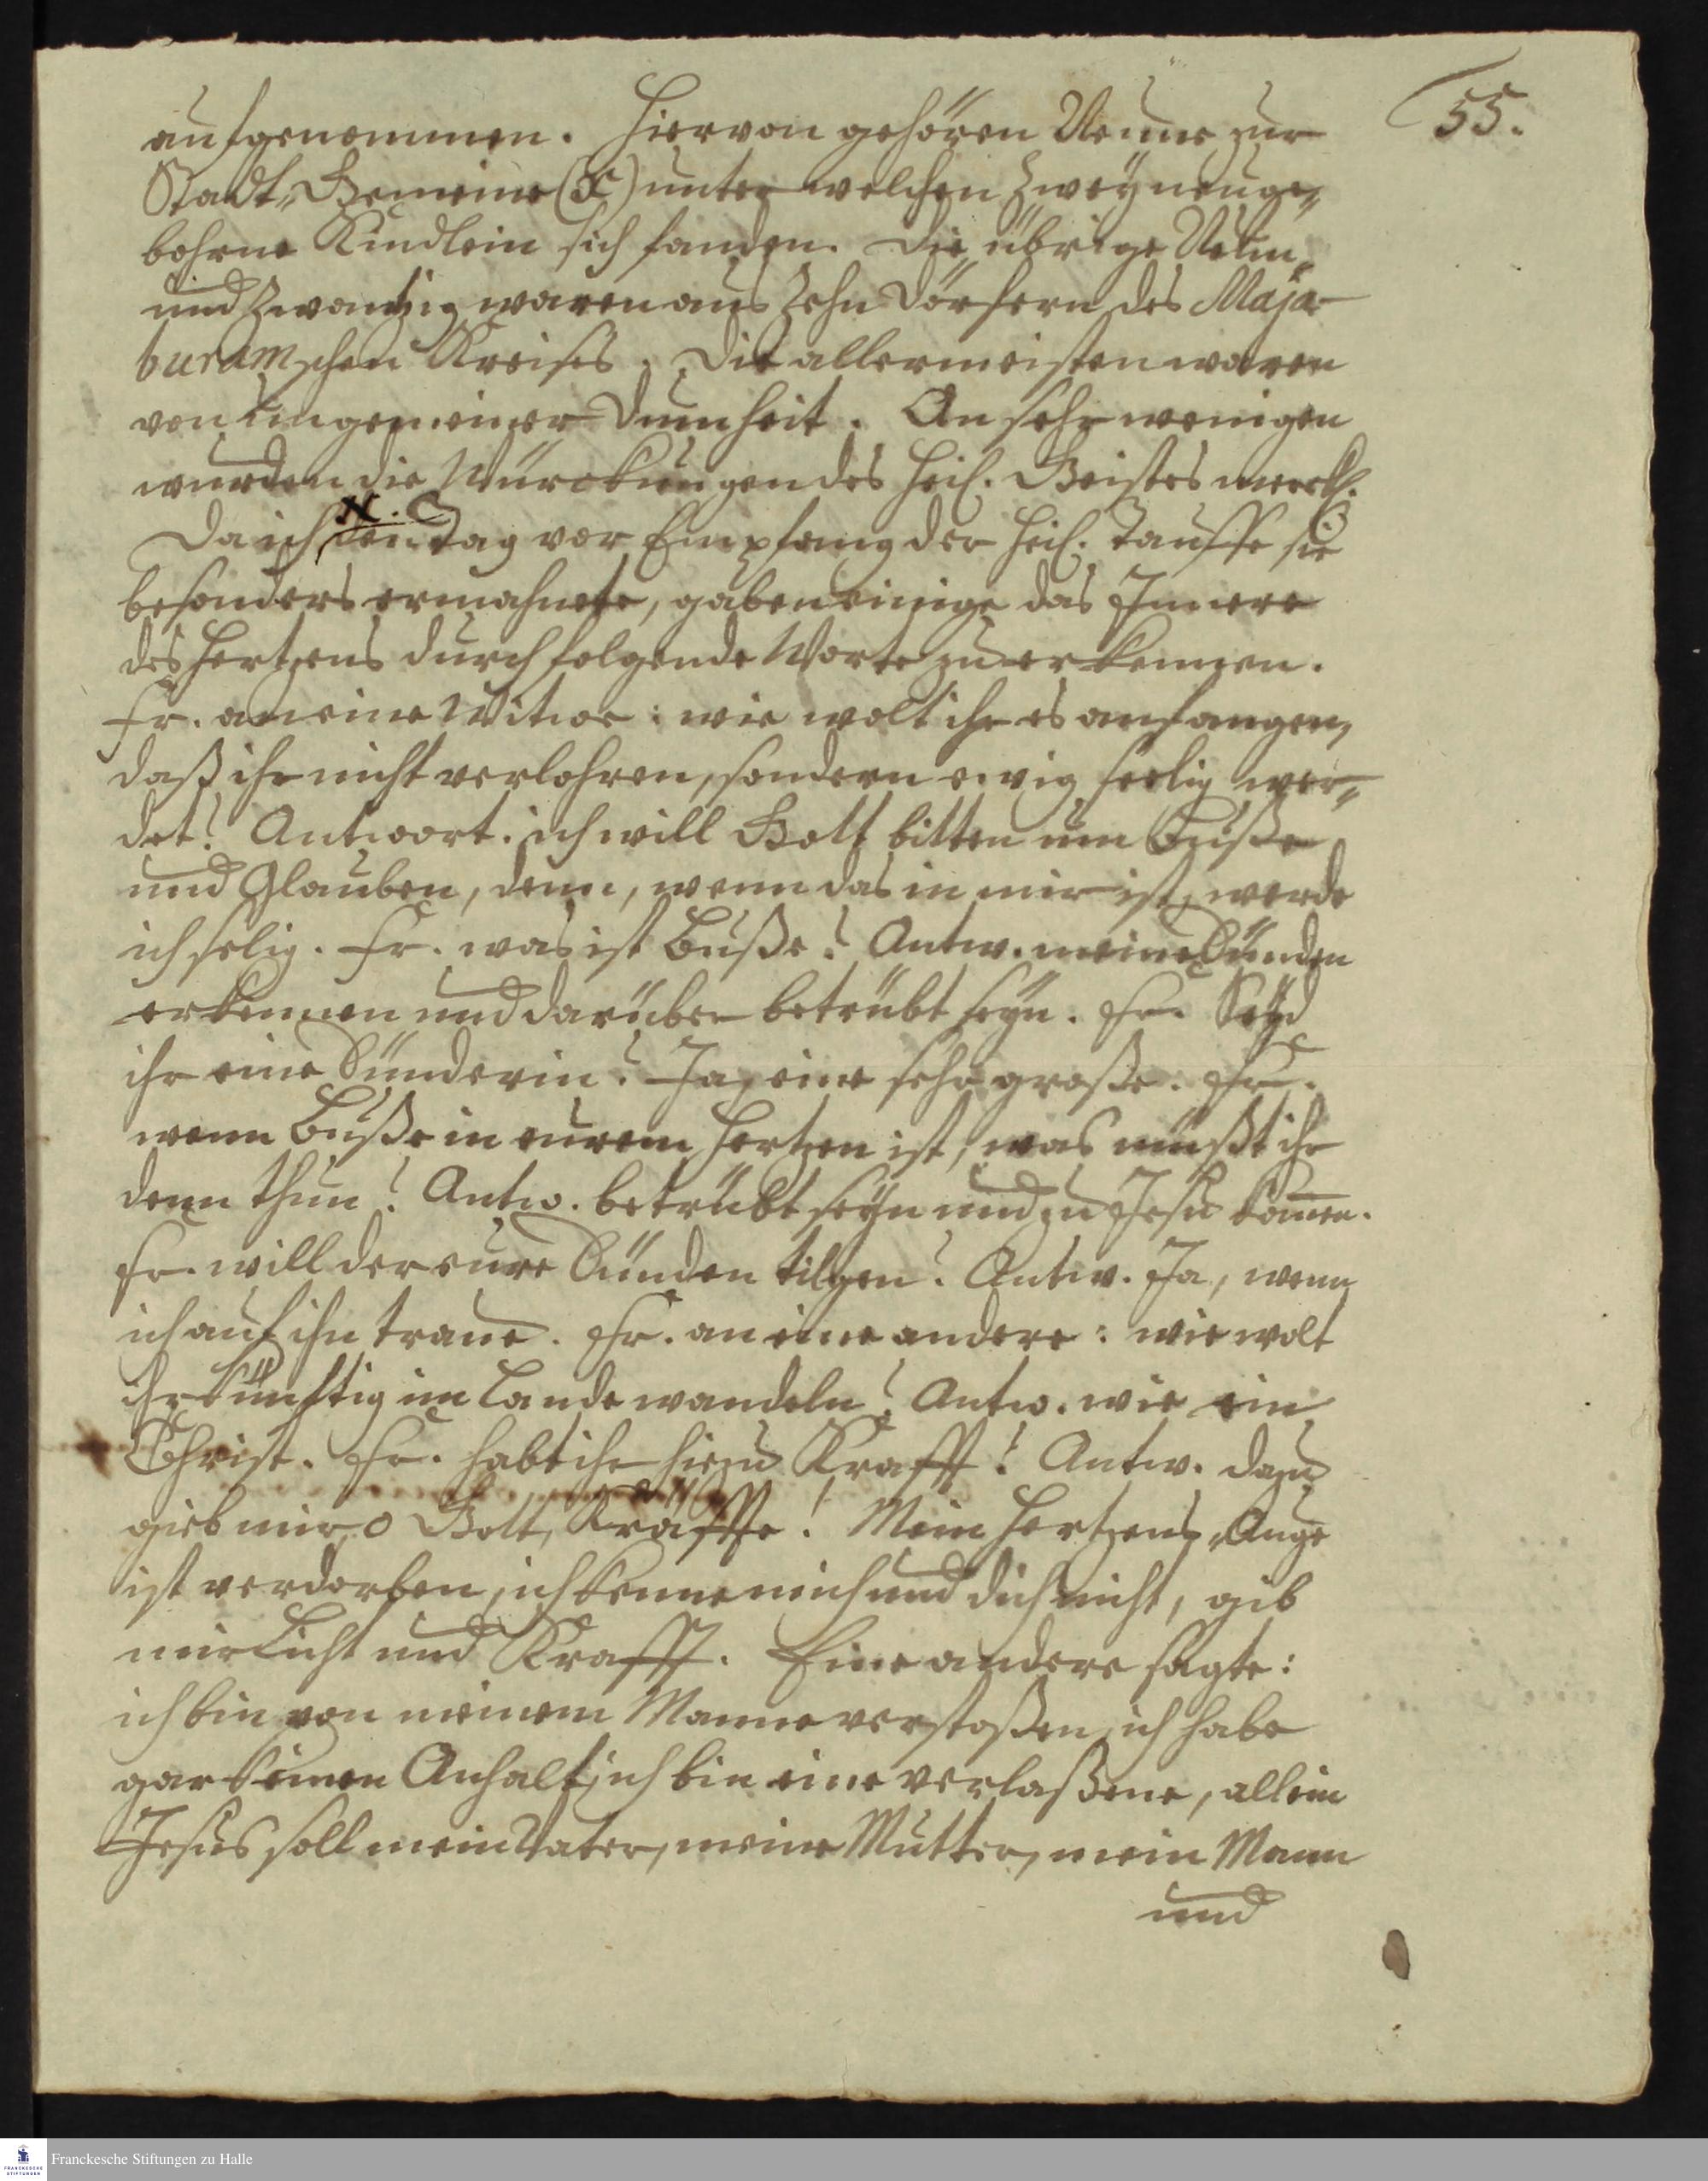 55.
aufgenommen. Hiervon gehören Neune zur
Stadt-Gemeine (x) unter welchen Zwey neuge-
bohrne Kindlein sich fanden. Die übrige Neun-
und Zwantzig waren aus Zehn Dörfern des Maja-
buramschen Kreises. Die allermeisten waren
von ungemeiner Dumheit. An sehr wenigen
wurden die Würckungen des Heil. Geistes merckl.
Da ich den Tag vor Empfang der Heil. Tauffe sie
besonders ermahnete, gaben einige das Innere
des Hertzens durch folgende Worte zu erkennen.
Fr. an eine Witwe: wie wolt ihr es anfangen,
daß ihr nicht verlohren, sondern ewig seelig wer-
det? Antwort. ich will Gott bitten um Buße
und Glauben, denn, wenn das in mir ist, werde
ich selig. Fr. was ist Buße? Antw. meine Sünden
erkennen und darüber betrübt seyn. Fr. Seyd
ihr eine Sünderin? Ja, eine sehr große. Fr.
wenn Buße in eurem Hertzen ist, was müßt ihr
denn thun? Antw. betrübt seyn und zu Jesu kommen.
Fr. will der eure Sünden tilgen? Antw. Ja, wenn
ich auf ihn traue. Fr. an eine andere: wie wolt
ihr künftig im Lande wandeln? Antw. wie ein
Christ. Fr. habt ihr hiezu Krafft? Antw. dazu
gieb mir, o Gott, Kräffte! Mein Hertzens-Auge
ist verdorben, ich kenne mich und dich nicht, gib
mir Licht und Krafft. Eine andere sagte:
ich bin von meinem Manne verstoßen, ich habe
gar keinen Anhalt, ich bin eine verlaßene, allein
Jesus soll mein Vater, meine Mutter, mein Mann
und
Franckesche Stiftungen zu Halle